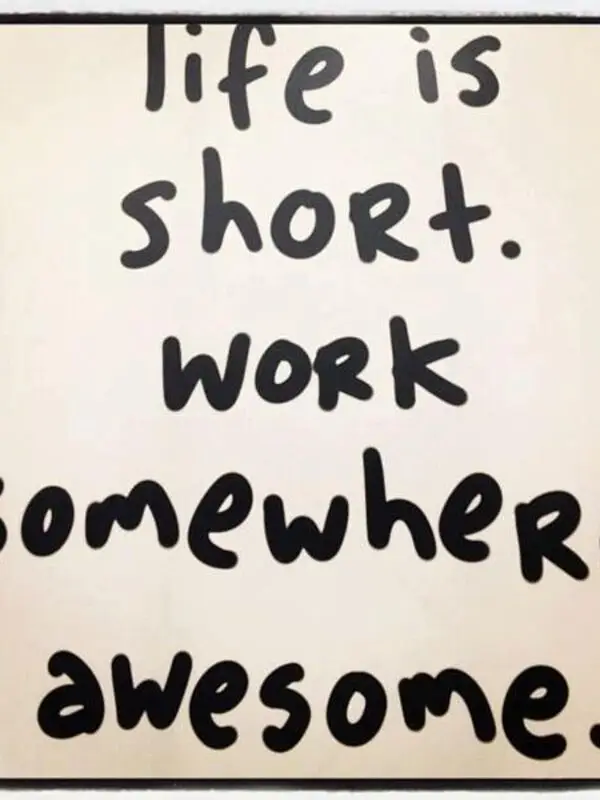 life is
short.
work
somewhere
awesome.